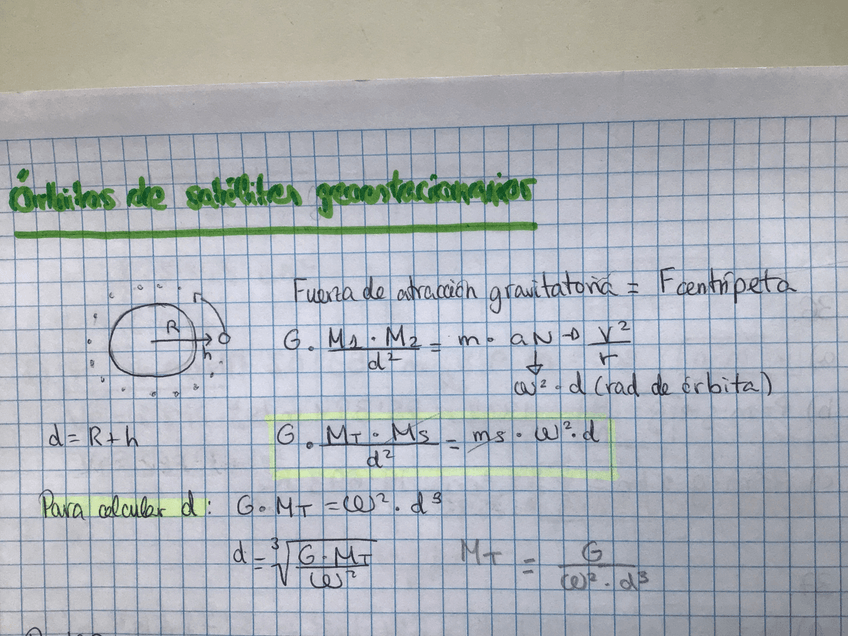 Órbitas de satélites geoestacionarios
Fuerza de atracción gravitatoria = Fcentrípeta
R
h
G · M1 · M2 / d² = m · aN → v² / r
↓
ω² · d (rad de órbita)
d = R + h
G · MT · Ms / d² = ms · ω² · d
Para calcular d: G · MT = ω² · d³
d = ³√(G · MT / ω²)
MT = G / ω² · d³